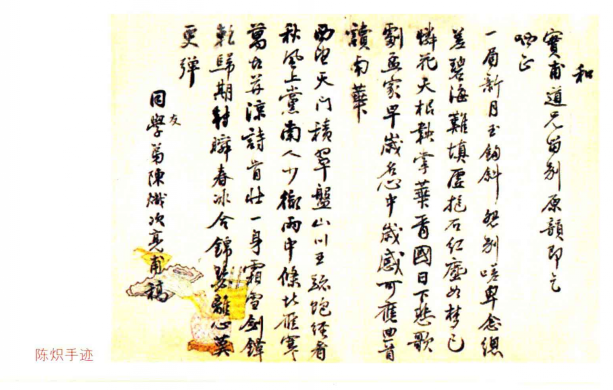 和
寶甫道兄留別原韻即乞
哂正
一眉新月玉鉤斜怨別嗟卑念總
差碧海難填虛抱石紅塵如夢已
憐花天根執掌華胥國日下悲歌
劇孟家早歲名心中歲感可應首
讀南華
西望天門積翠盤山川王跡飽經看
秋風上黨南人少雨中條北雁寒
萬古涼詩骨壯一身霜雪劍鋒
乾歸期轉瞬春冰合錦瑟離心莫
更彈
同學友弟陳熾次亮甫稿
陈炽手迹